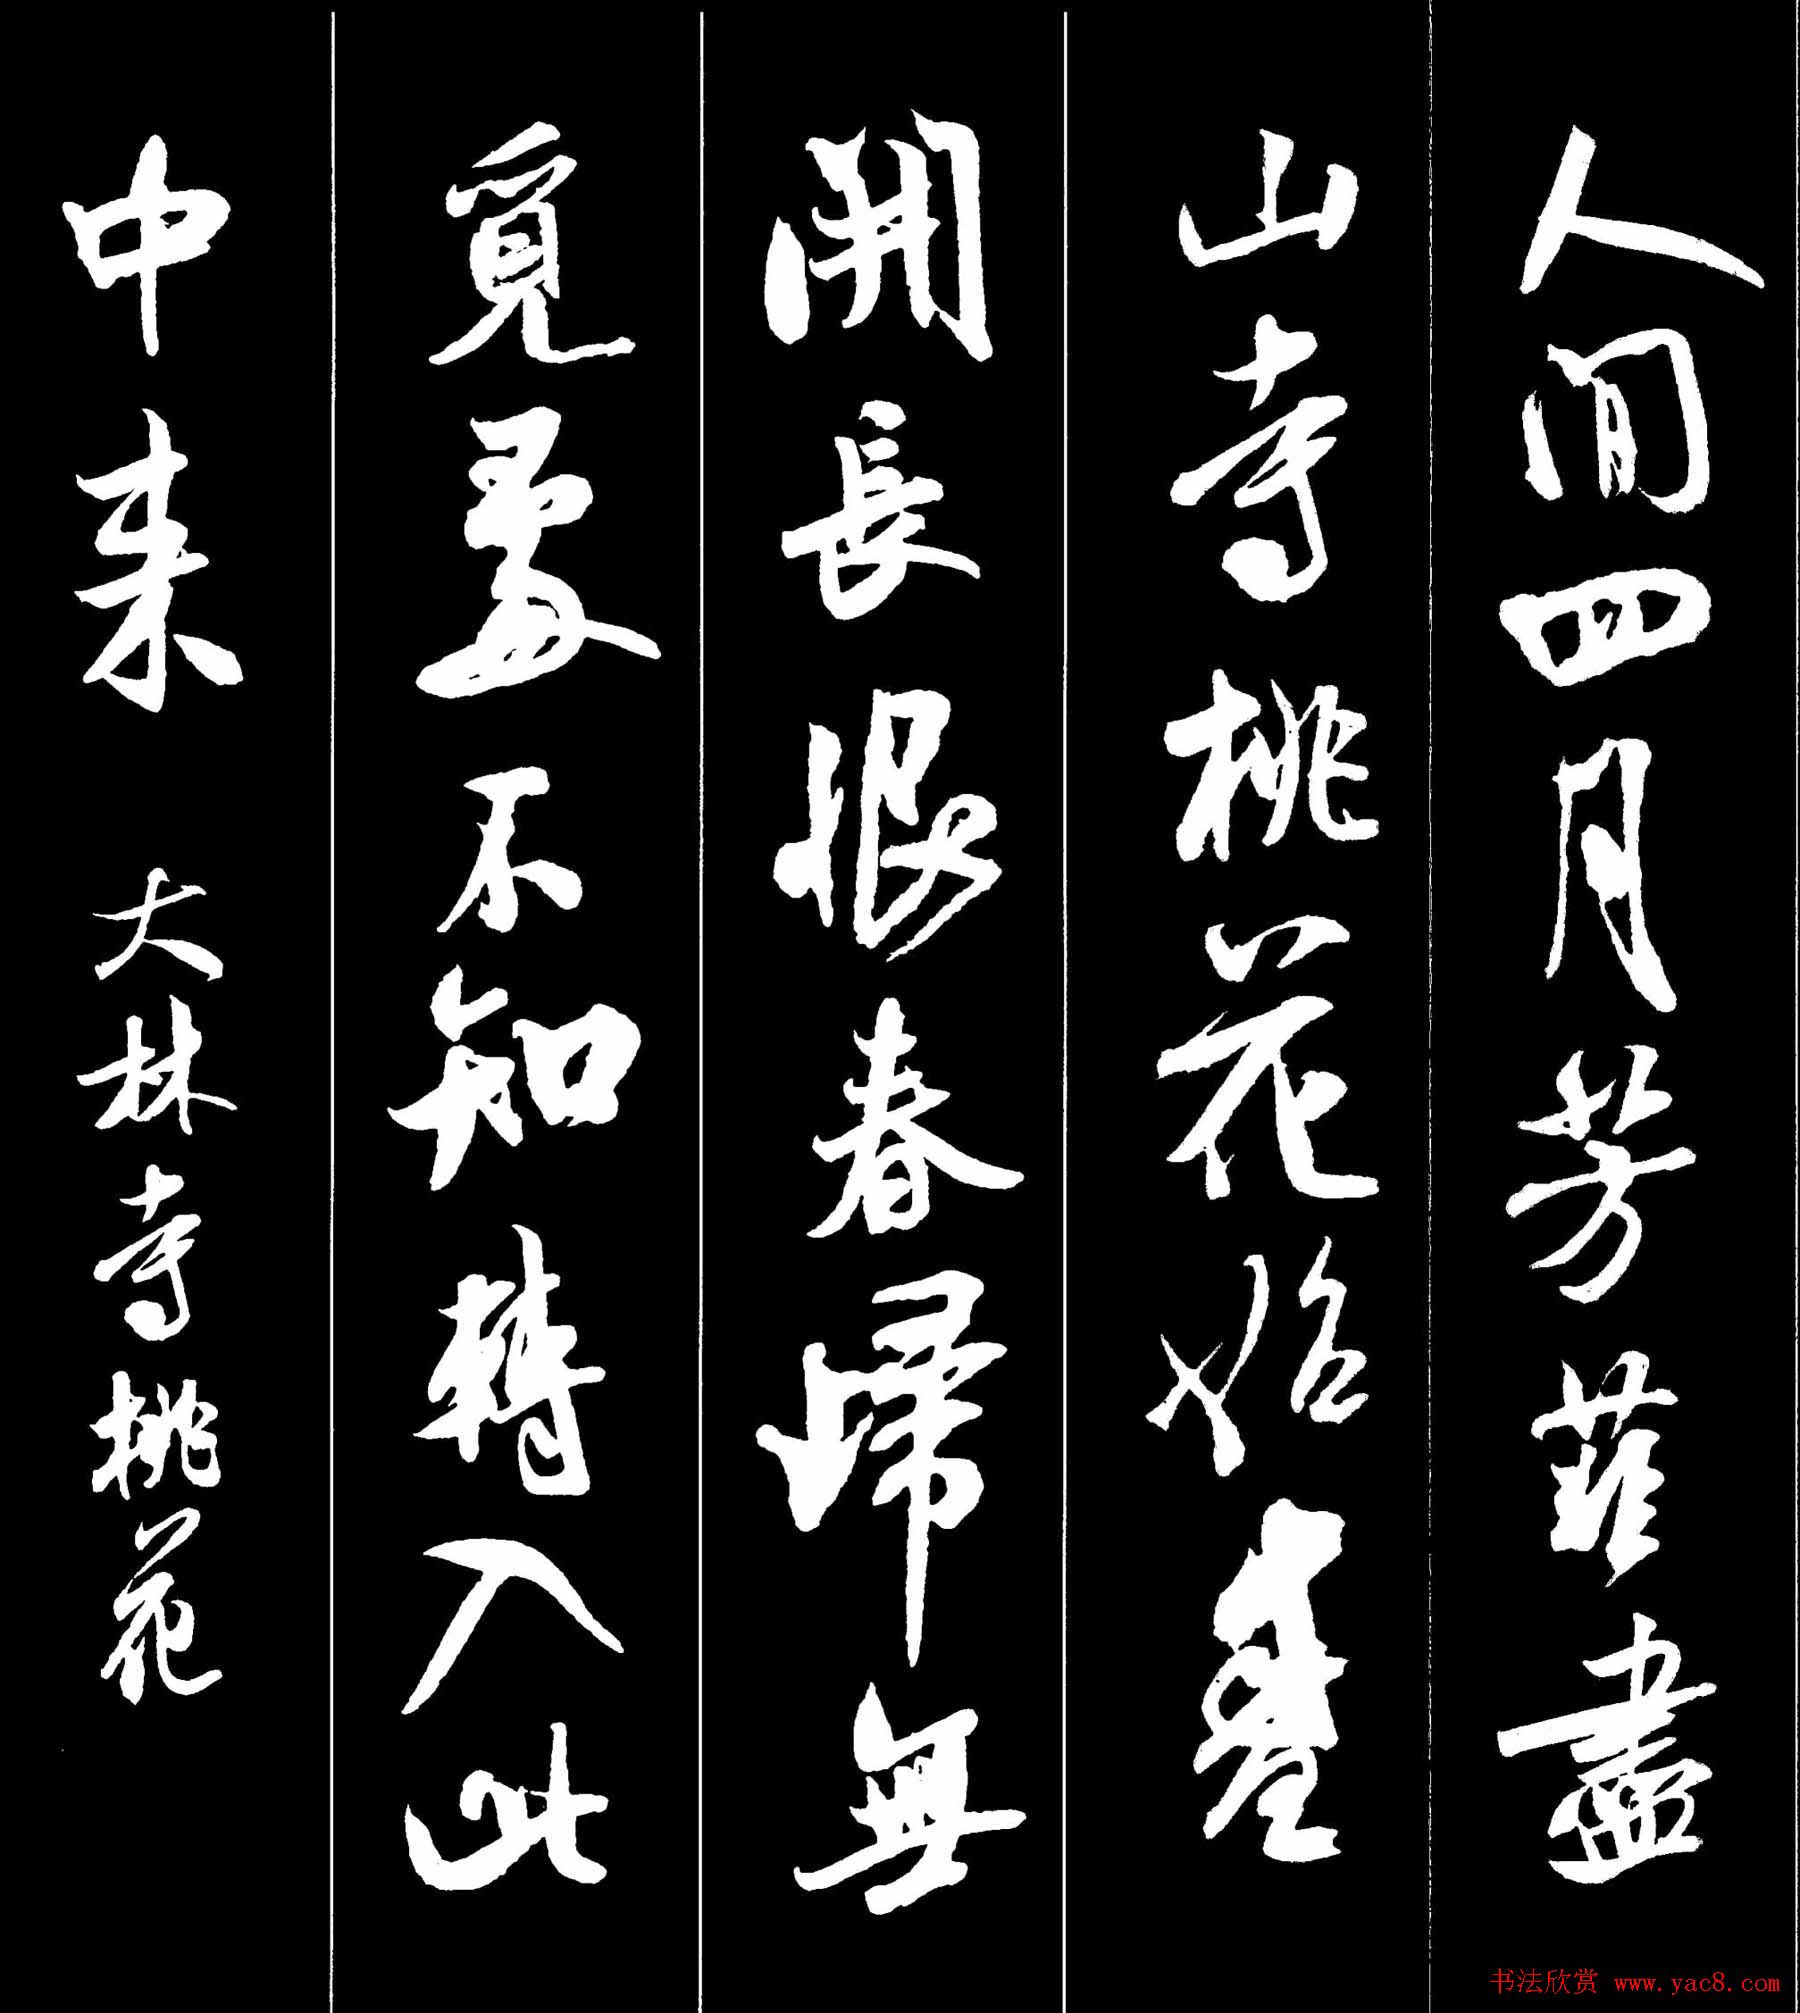 人間四月芳菲盡
山寺桃花始盛
開長恨春歸無
覓處不知轉入此
中来 大林寺桃花
书法欣赏 www.yac8.com